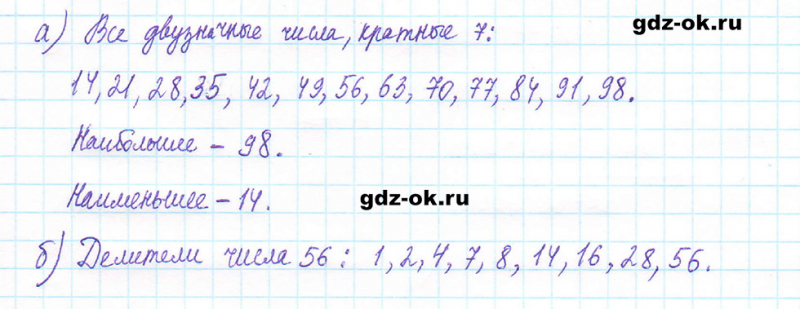 gdz-ok.ru
а) Все двузначные числа, кратные 7:
14, 21, 28, 35, 42, 49, 56, 63, 70, 77, 84, 91, 98.
Наибольшее – 98.
Наименьшее – 14.
gdz-ok.ru
б) Делители числа 56: 1, 2, 4, 7, 8, 14, 16, 28, 56.